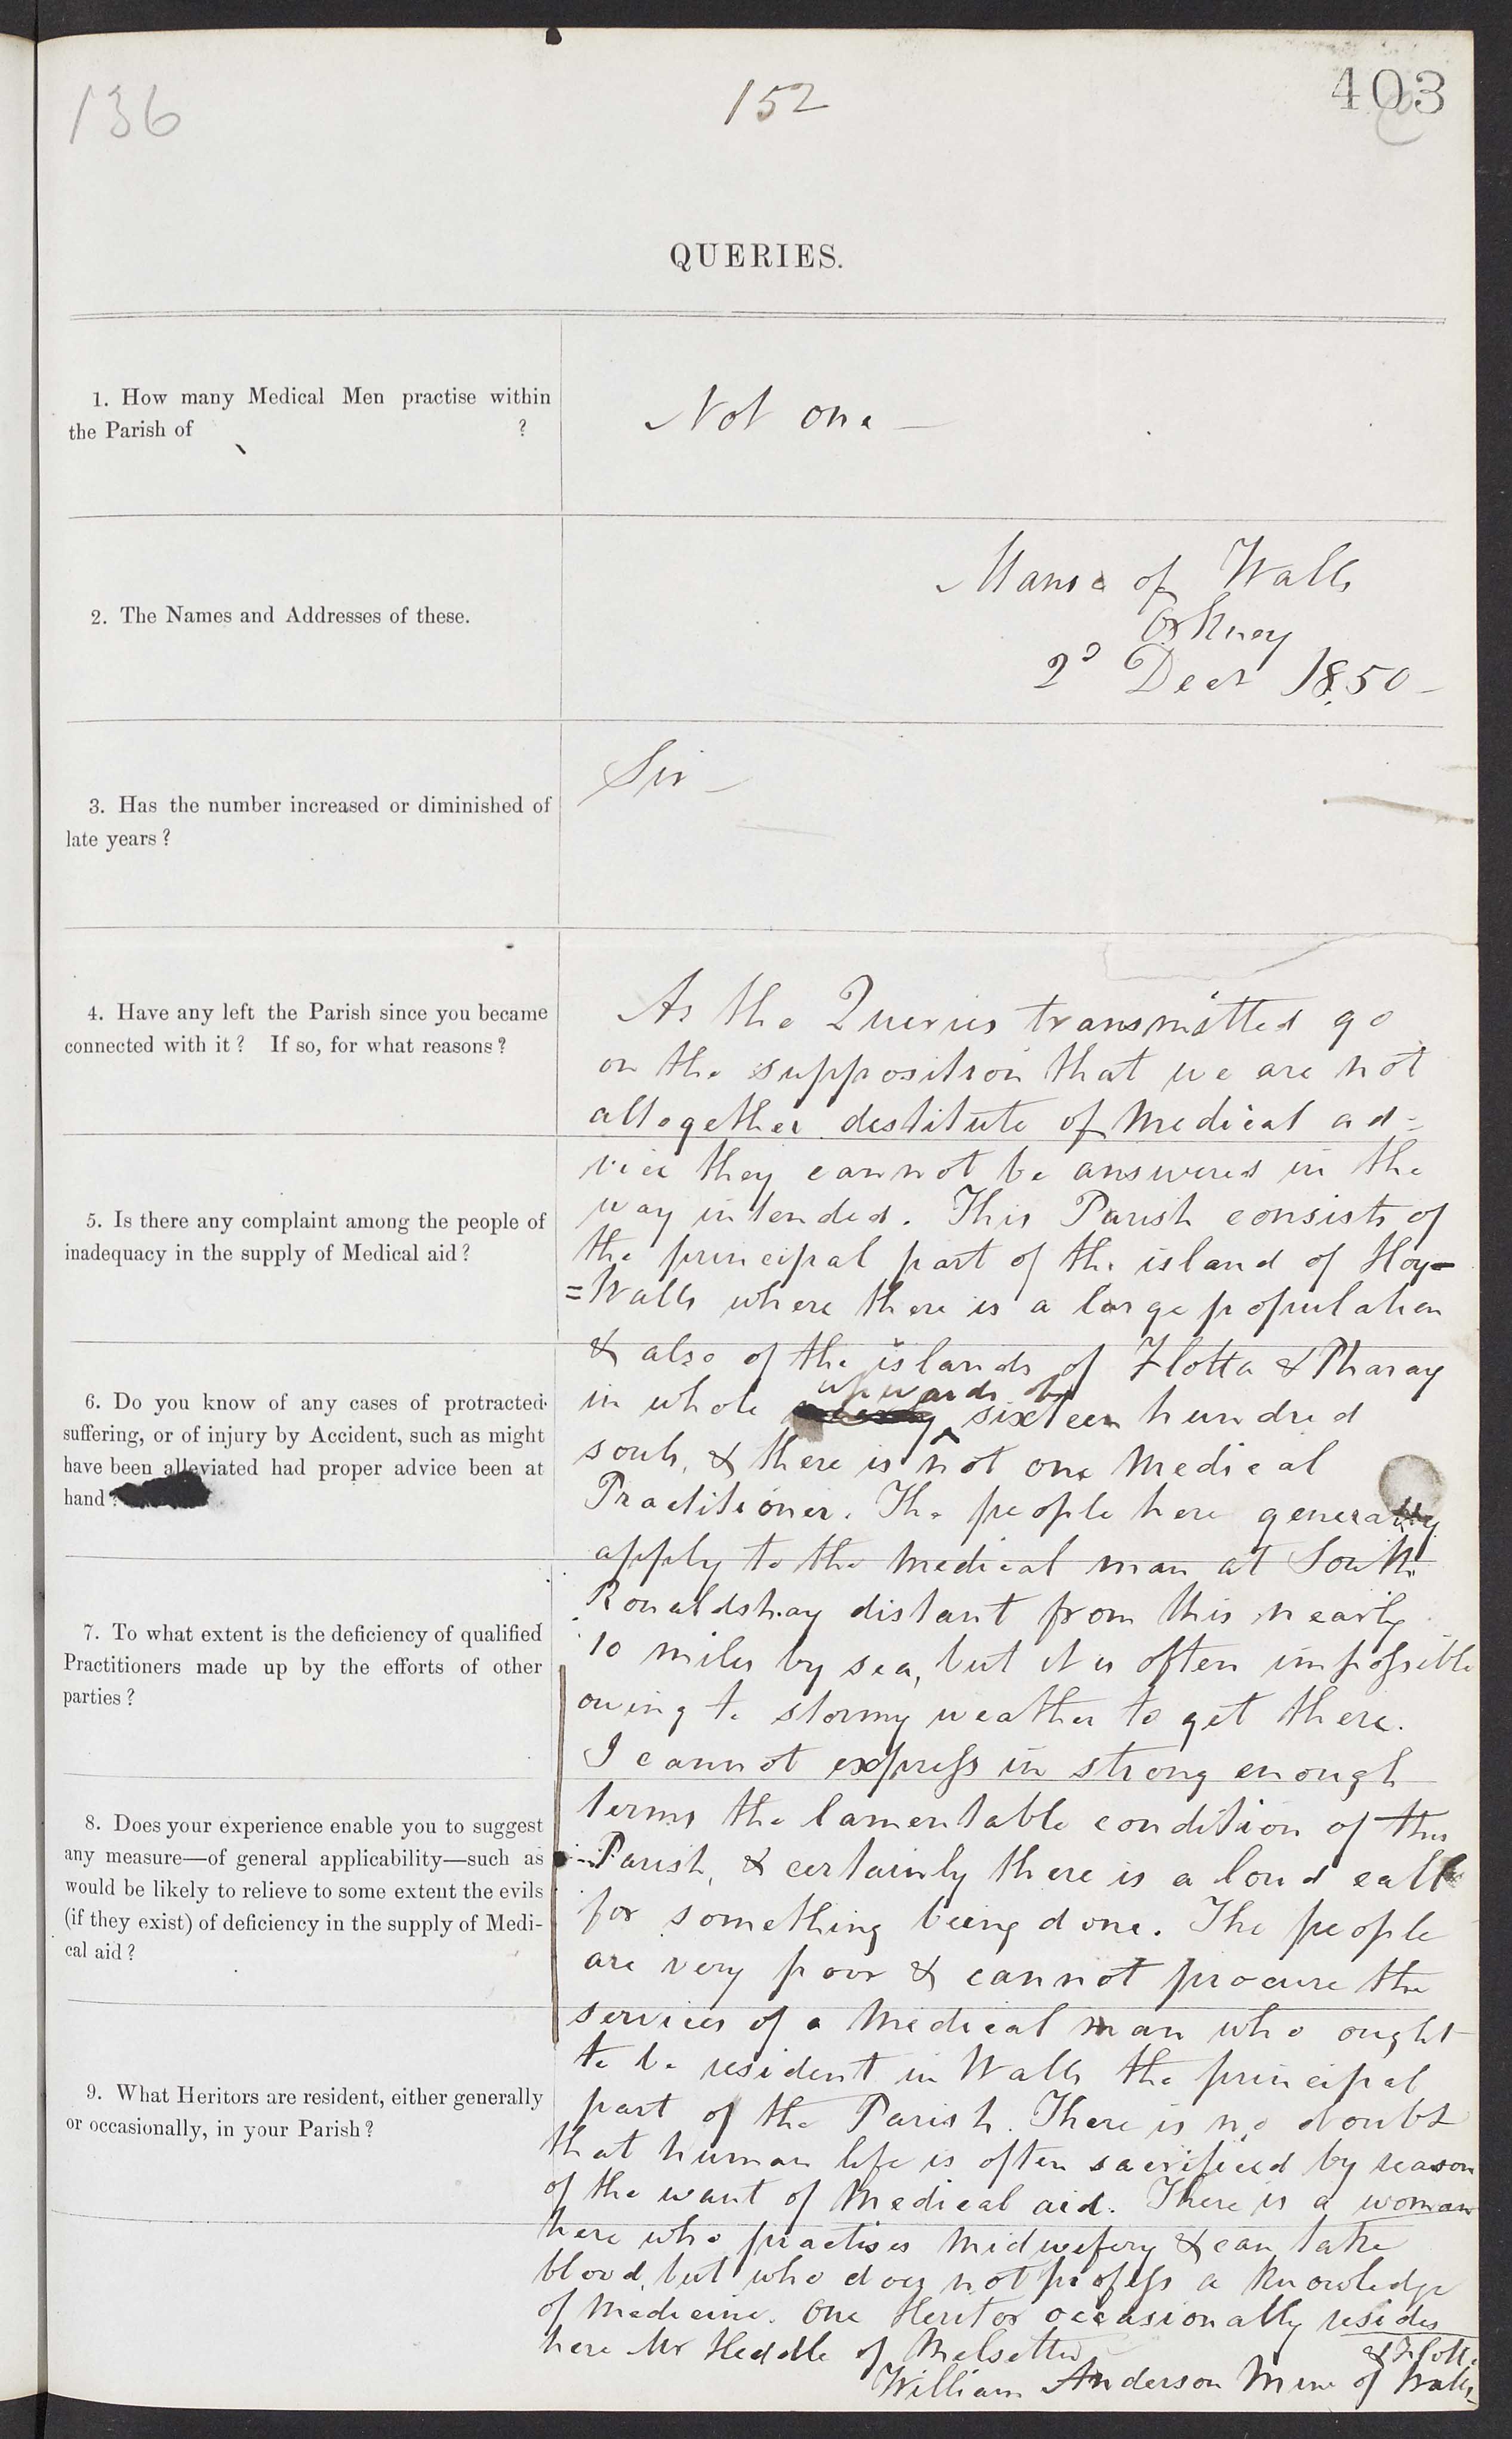 136
152
403
QUERIES.
1. How many Medical Men practise within
the Parish of ?
Not one —
2. The Names and Addresses of these.
Manse of Walls
Orkney
2d Decr 1850 —
3. Has the number increased or diminished of
late years ?
Sir —
4. Have any left the Parish since you became
connected with it ? If so, for what reasons ?
5. Is there any complaint among the people of
inadequacy in the supply of Medical aid ?
6. Do you know of any cases of protracted
suffering, or of injury by Accident, such as might
have been alleviated had proper advice been at
hand ?
7. To what extent is the deficiency of qualified
Practitioners made up by the efforts of other
parties ?
8. Does your experience enable you to suggest
any measure—of general applicability—such as
would be likely to relieve to some extent the evils
(if they exist) of deficiency in the supply of Medi-
cal aid ?
9. What Heritors are resident, either generally
or occasionally, in your Parish ?
As the Queries transmitted go
on the supposition that we are not
altogether destitute of Medical ad=
vice they cannot be answered in the
way intended. This Parish consists of
the principal part of the island of Hoy=
=Walls where there is a large population
& also of the islands of Flotta & Pharay
in whole upwards of sixteen hundred
souls, & there is not one Medical
Practitioner. The people here generally
apply to the Medical man at South
Ronaldshay distant from this nearly
10 miles by sea, but it is often impossible
owing to stormy weather to get there.
I cannot express in strong enough
terms the lamentable condition of this
Parish, & certainly there is a loud call
for something being done. The people
are very poor & cannot procure the
services of a Medical man who ought
to be resident in Walls the principal
part of the Parish. There is no doubt
that human life is often sacrificed by reason
of the want of Medical aid. There is a woman
here who practises Midwifery & can take
blood, but who does not profess a knowledge
of Medicine. One Heritor occasionally resides
here Mr Heddle of Melsetter
William Anderson Minr of Walls
& Flotta